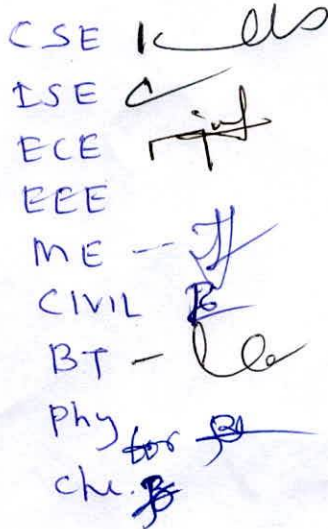 CSE
ISE
ECE
EEE
ME --
CIVIL
BT -
Phy for
Che.